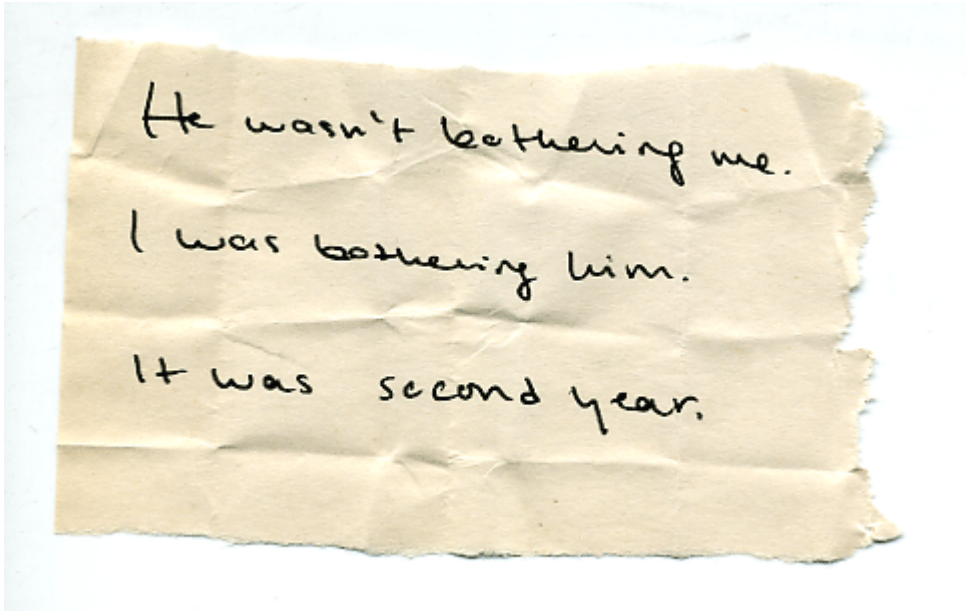 He wasn't bothering me.
I was bothering him.
It was second year.